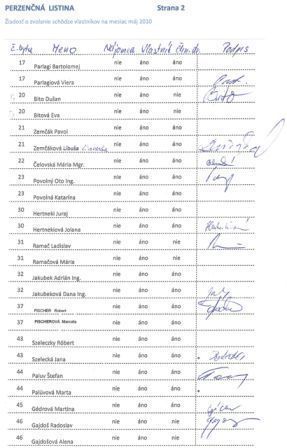 PERZENČNÁ LISTINA Strana 2
Žiadosť o zvolanie schôdze vlastníkov na mesiac máj 2010
Č.bytu Meno Nájomca Vlastník Člen.dr. Podpis
17 Parlagi Bartolomej nie áno áno
17 Parlagiová Viera nie áno áno
20 Bito Dušan nie áno áno
20 Bitová Eva nie áno nie
21 Zemčák Pavol nie áno áno
21 Zemčáková Libuša nie áno nie
22 Čelovská Mária Mgr. nie áno áno
23 Povolný Oto Ing. nie áno áno
23 Povolná Katarína nie áno áno
30 Hertneki Juraj nie áno áno
30 Hertnekiová Jolana nie áno áno
31 Ramač Ladislav nie áno nie
31 Ramačová Mária nie áno nie
32 Jakubek Adrián Ing. nie áno áno
32 Jakubeková Dana Ing. nie áno áno
37 FISCHER Róbert nie áno áno
37 FISCHEROVÁ Marcela nie áno áno
43 Szeleczky Róbert nie áno áno
43 Szelecká Jana nie áno áno
44 Paluv Štefan nie áno áno
44 Palúvová Marta nie áno áno
45 Gédrová Martina nie áno áno
46 Gajdoš Radoslav nie áno nie
46 Gajdošová Alena nie áno nie